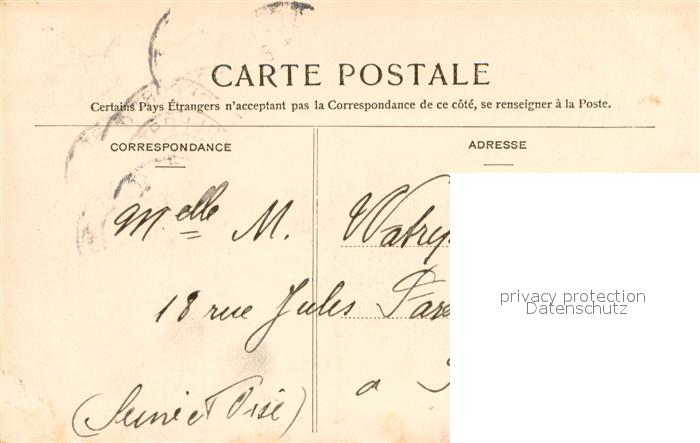 CARTE POSTALE
Certains Pays Étrangers n'acceptant pas la Correspondance de ce côté, se renseigner à la Poste.
CORRESPONDANCE
ADRESSE
Melle M.
18 rue Jules
a
(Seine et Oise)
privacy protection
Datenschutz